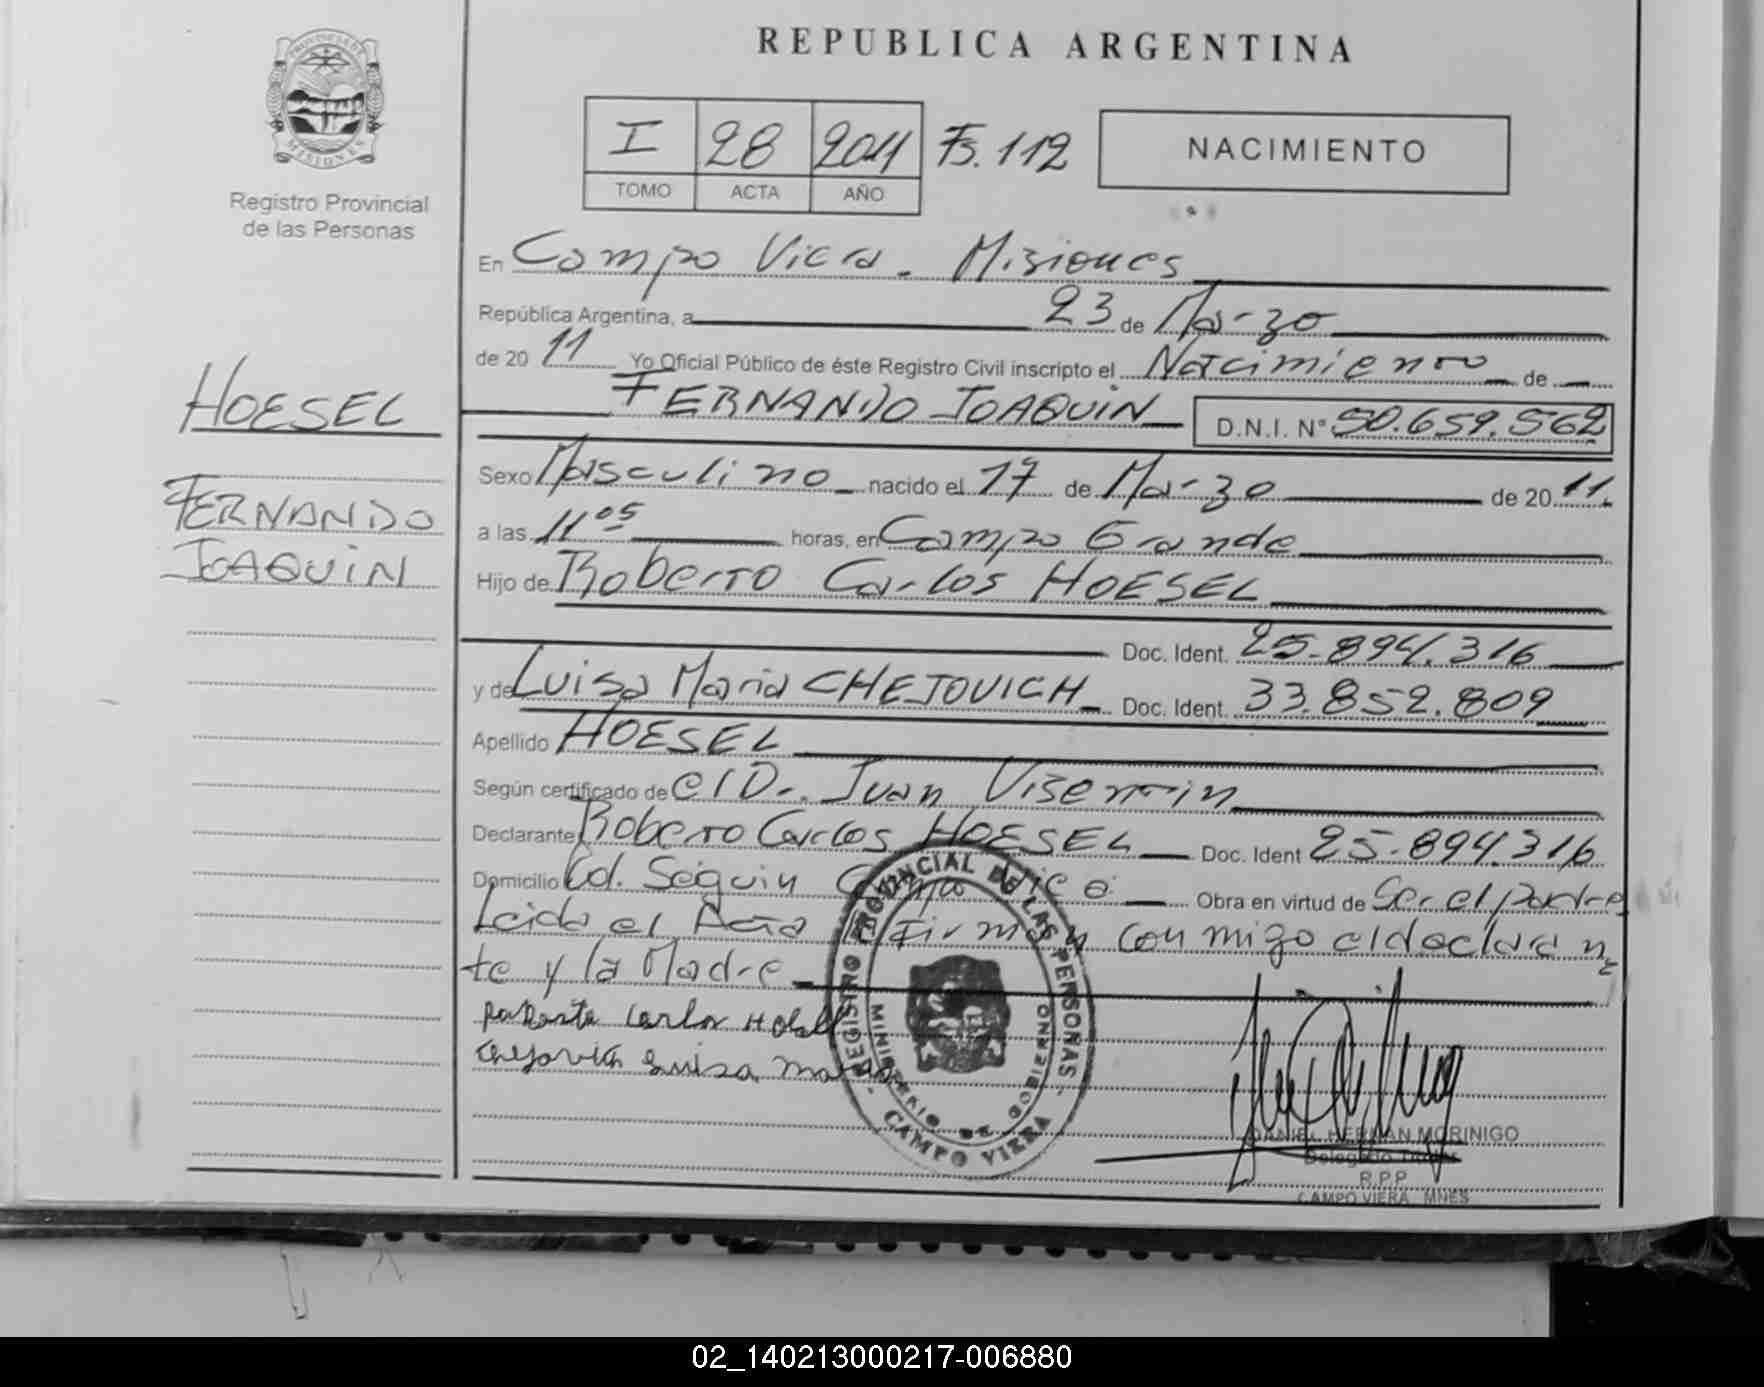 REPUBLICA ARGENTINA
PROVINCIA DE
MISIONES
Registro Provincial
de las Personas
I 28 2011 Fs. 112
TOMO ACTA AÑO
NACIMIENTO
En Campo Viera - Misiones
República Argentina, a 23 de Marzo
de 20 11 Yo Oficial Público de éste Registro Civil inscripto el Nacimiento de
FERNANDO JOAQUIN D.N.I. N° 50.659.562
HOESEL
FERNANDO
JOAQUIN
Sexo Masculino nacido el 17 de Marzo de 20 11.
a las 11 05 horas, en Campo Grande
Hijo de Roberto Carlos HOESEL
Doc. Ident. 25.894.316
y de Luisa Maria CHEJOVICH Doc. Ident. 33.852.809
Apellido HOESEL
Según certificado de el D. Juan Visentin
Declarante Roberto Carlos HOESEL Doc. Ident 25.894.316
Domicilio Cd. Seguin Campo Viera Obra en virtud de Ser el padre
Leida el Acta Firman con migo el declaran
te y la Madre
Carlos
Chejovich Luisa Maria
REGISTRO PROVINCIAL DE LAS PERSONAS
MINISTERIO DE GOBIERNO
CAMPO VIERA
DANIEL HERNAN MORINIGO
Delegado Titular
R.P.P
CAMPO VIERA MNES
02_140213000217-006880